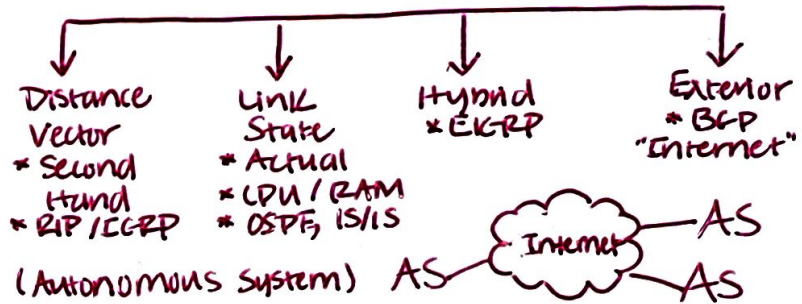 Distance
Vector
* Second
Hand
* RIP / IGRP
Link
State
* Actual
* CPU / RAM
* OSPF, IS/IS
Hybrid
* EIGRP
Exterior
* BGP
"Internet"
(Autonomous System)
AS
Internet
AS
AS